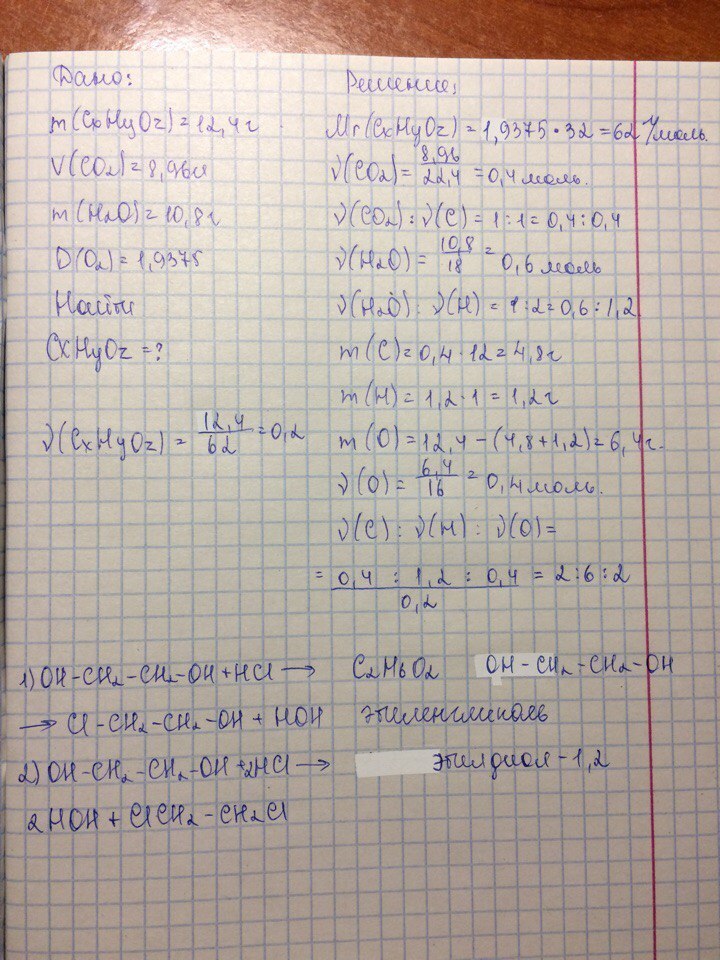 Дано:
m(CxHyOz)=12,4г
V(CO2)=8,96л
m(H2O)=10,8г
D(O2)=1,9375
Найти
CxHyOz=?
ν(CxHyOz) = 12,4/62 = 0,2
Решение:
Mr(CxHyOz) = 1,9375·32 = 62 г/моль.
ν(CO2) = 8,96/22,4 = 0,4 моль.
ν(CO2) : ν(C) = 1:1 = 0,4:0,4
ν(H2O) = 10,8/18 = 0,6 моль
ν(H2O) : ν(H) = 1:2 = 0,6:1,2
m(C) = 0,4·12 = 4,8г
m(H) = 1,2·1 = 1,2г
m(O) = 12,4 - (4,8+1,2) = 6,4г.
ν(O) = 6,4/16 = 0,4 моль.
ν(C) : ν(H) : ν(O) =
= 0,4 : 1,2 : 0,4 / 0,2 = 2:6:2
1) OH-CH2-CH2-OH + HCl →
→ Cl-CH2-CH2-OH + HOH
2) OH-CH2-CH2-OH + 2HCl →
2HOH + ClCH2-CH2Cl
C2H6O2 OH-CH2-CH2-OH
этиленгликоль
этилдиол-1,2